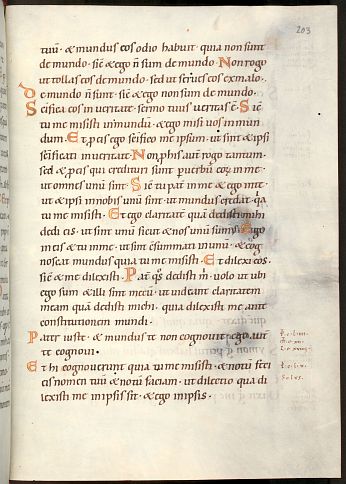 203
tuū · & mundus eos odio habuit quia non sunt
de mundo · sic & ego n̄ sum de mundo · Non rogo
ut tollas eos de mundo · sed ut serues eos ex malo ·
De mundo n̄ sunt · sic & ego non sum de mundo ·
Scifica eos in ueritate · sermo tuus ueritas ē · Sic
tu me misisti in mundū · & ego misi uos in mun
dum · Et p eis ego scifico me ipsum · ut sint & ipsi
scificati in ueritate · Non p his aut̄ rogo tantum ·
sed & p eis qui credituri sunt p uerbū eoꝝ in me ·
ut omnes unū sint · Sic tu pat̄ in me & ego in te ·
ut & ipsi in nobis unū sint · ut mundus credat · qa
tu me misisti · Et ego claritatē quā dedisti mihi
dedi eis · ut sint unū sicut & nos unū sumus · Ego
in eis & tu in me · ut sint c̄summati in unū · & cog
noscat mundus quia tu me misisti · Et dilexi eos ·
sic & me dilexisti · Pat̄ q̄s dedisti m̄ · uolo ut ubi
ego sum & illi sint mecū · ut uideant claritatem
meam quā dedisti michi · quia dilexisti me ante
constitutionem mundi ·
Pater iuste · & mundus te non cognouit · ego aut̄
te cognoui ·
Et hi cognouerunt quia tu me misisti · & notū feci
eis nomen tuū & notū faciam · ut dilectio qua di
lexisti me in ipsis sit · & ego in ipsis ·